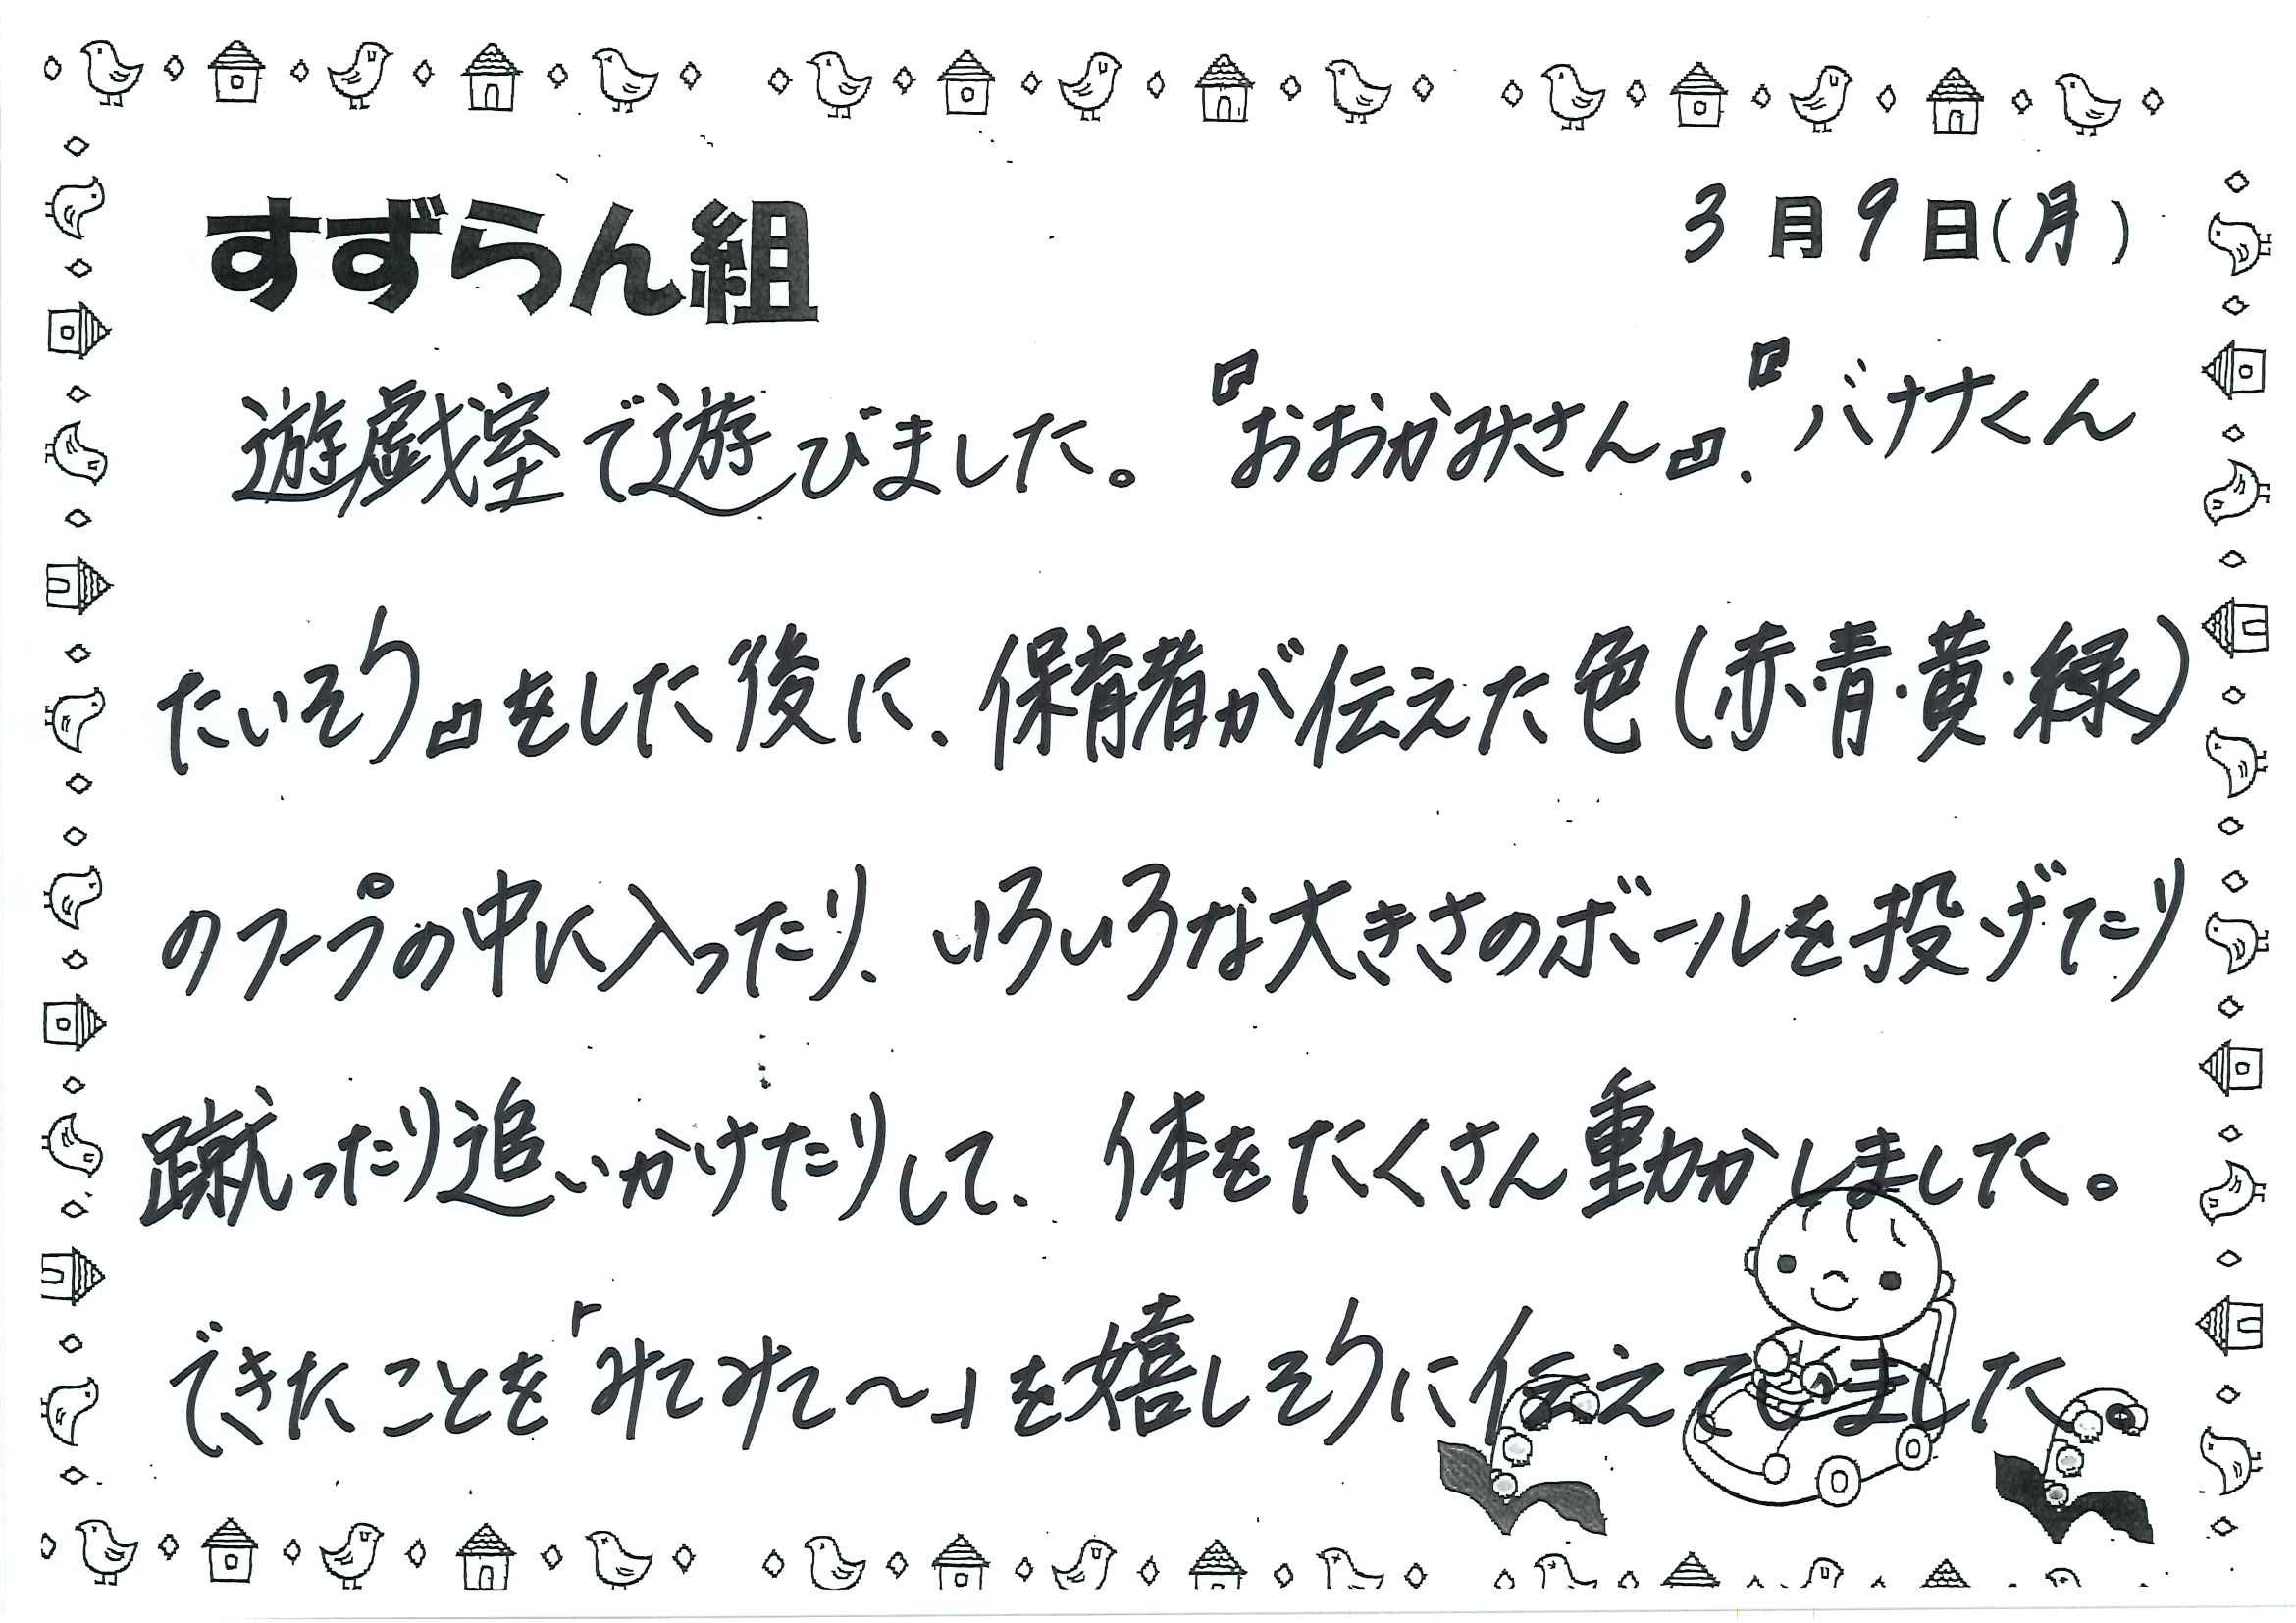 すずらん組
3月9日(月)
遊戯室で遊びました。『おおかみさん』、『バナナくん
たいそう』をした後に、保育者が伝えた色(赤・青・黄・緑)
のフープの中に入ったり、いろいろな大きさのボールを投げたり
蹴ったり追いかけたりして、体をたくさん動かしました。
できたことを「みてみて～」を嬉しそうに伝えてました。